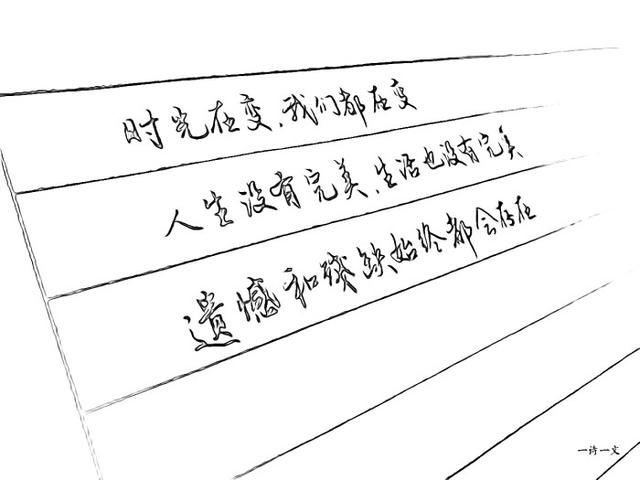 时光在变,我们都在变
人生没有完美,生活也没有完美
遗憾和残缺始终都会存在
一诗一文